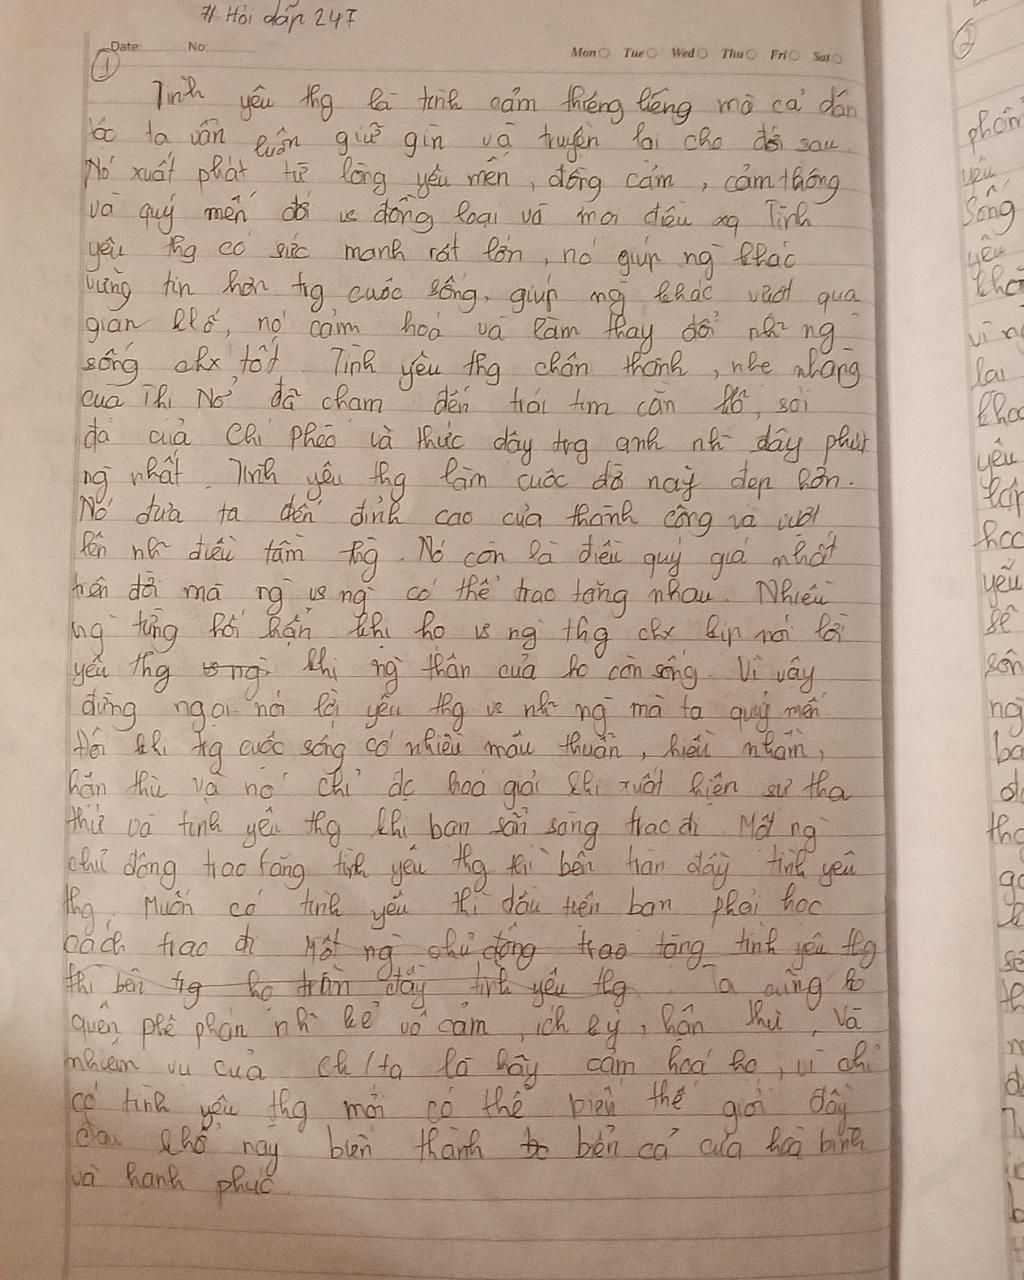 # Hỏi đáp 247
Date: No:
Mon Tue Wed Thu Fri Sat
①
Tình yêu thg là tình cảm thiêng liêng mà cả dân
tộc ta vẫn luôn giữ gìn và truyền lại cho đời sau
Nó xuất phát từ lòng yêu mến, đồng cảm, cảm thông
và quý mến đối vs đồng loại và mọi điều xq Tình
yêu thg có sức mạnh rất lớn, nó giúp ng khác
vững tin hơn trg cuộc sống, giúp ng khác vượt qua
gian khổ, nó cảm hoá và làm thay đổi nh~ ng
sống chx tốt. Tình yêu thg chân thành, nhẹ nhàng
của Thị Nở đã chạm đến trái tim cằn cỗi, sỏi
đá của Chí Phèo và thức dậy trg anh nh~ dây phút
ng nhất. Tình yêu thg làm cuộc đời này đẹp hơn.
Nó đưa ta đến đỉnh cao của thành công và vượt
lên nh~ điều tầm thg. Nó còn là điều quý giá nhất
trên đời mà ng vs ng có thể trao tặng nhau. Nhiều
ng từng hối hận khi họ vs ng thg chx kịp nói lời
yêu thg vs ng khi ng thân của họ còn sống. Vì vậy
đừng ngại nói lời yêu thg vs nh~ ng mà ta quý mến
Đôi khi trg cuộc sống có nhiều mâu thuẫn, hiểu nhầm,
hận thù và nó chỉ đc hoá giải khi xuất hiện sự tha
thứ và tình yêu thg khi bạn sẵn sàng trao đi. Một ng
chủ động trao tặng tình yêu thg thì bên tràn đầy tình yêu
thg. Muốn có tình yêu thì đầu tiên bạn phải học
cách trao đi Một ng chủ động trao tặng tình yêu thg
thì bên trg họ tràn đầy tình yêu thg Ta cũng k
quên phê phán nh~ kẻ vô cảm, ích kỷ, hận thù, Và
nhiệm vụ của ch/ta là hãy cảm hoá họ, vì chỉ
có tình yêu thg mới có thể biến thế giới đầy
đau khổ này biến thành bể bến cả của hoà bình
và hạnh phúc.
②
phán
yêu
Sống
yêu
lại
yêu
học
yêu
sẽ